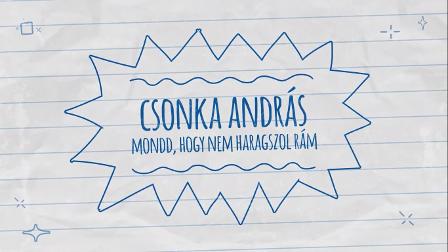 CSONKA ANDRÁS
MONDD, HOGY NEM HARAGSZOL RÁM